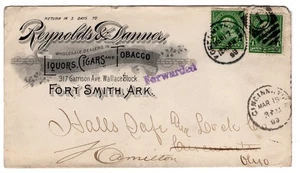 RETURN IN 5 DAYS TO
Reynolds & Danner,
WHOLESALE DEALERS IN
LIQUORS, CIGARS AND TOBACCO
317 Garrison Ave. Wallace Block
FORT SMITH, ARK.
Forwarded
CINCINNATI
MAR 15
Halls Safe & Lock Co
Cincinnati
Hamilton
Ohio